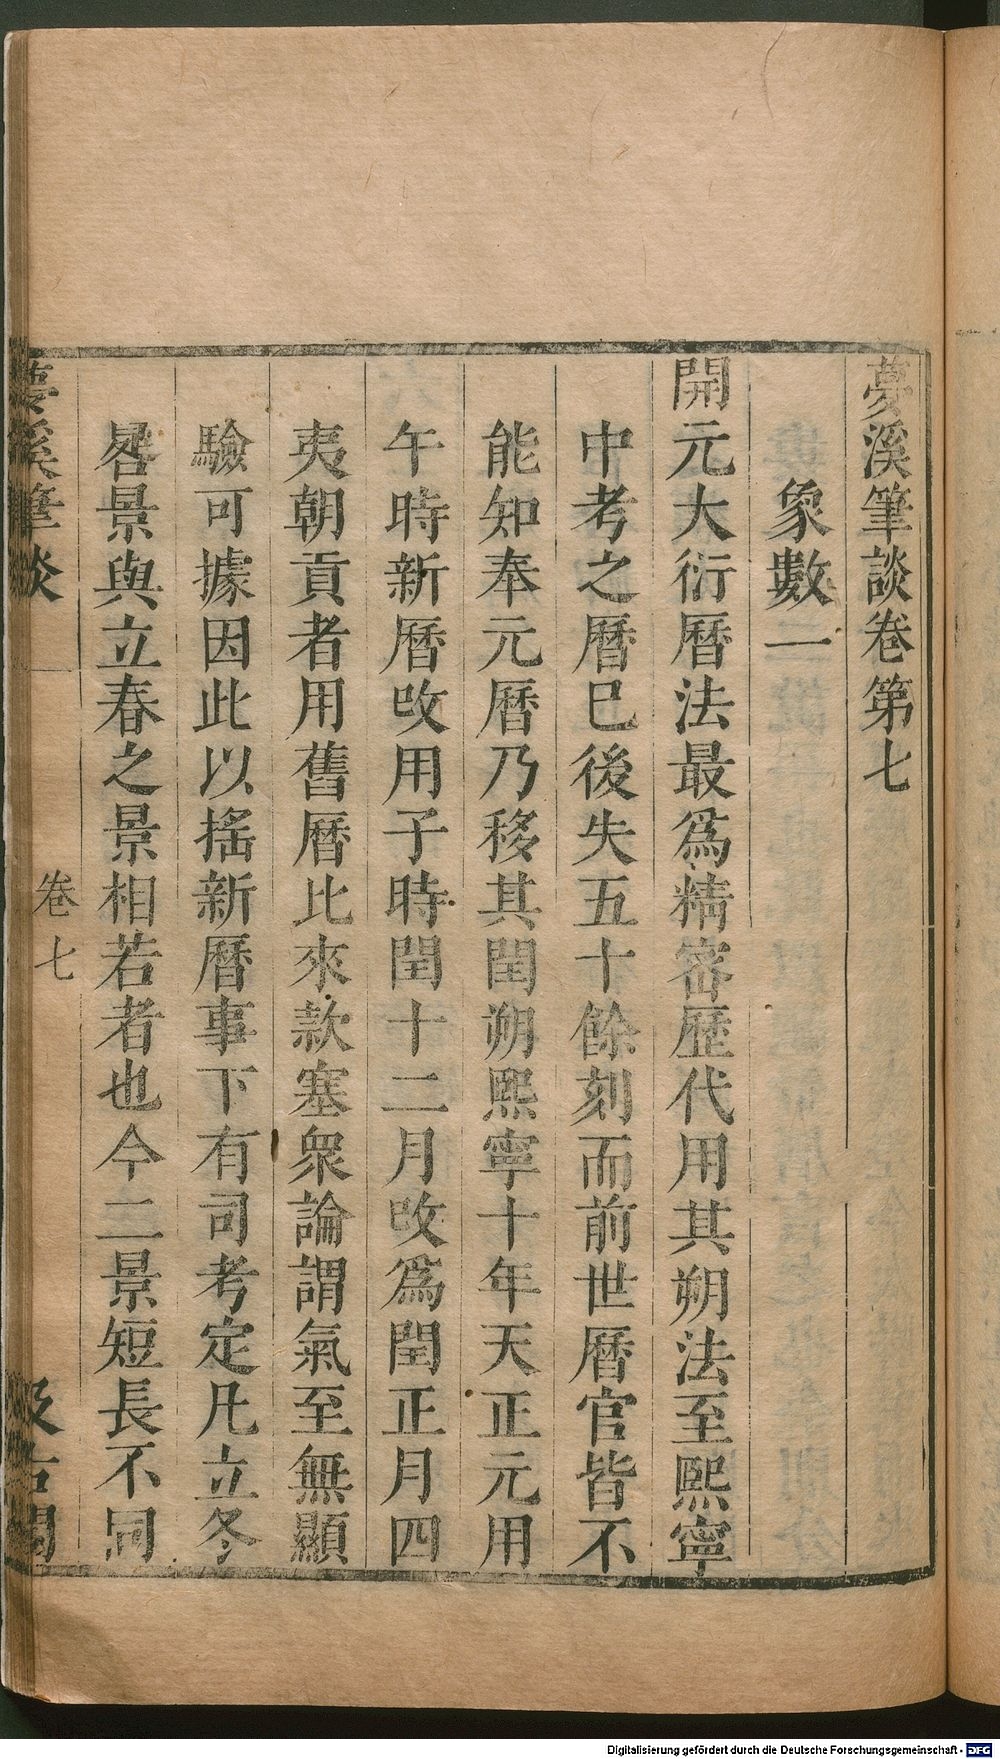 夢溪筆談卷第七
象數一
開元大衍曆法最爲精密歷代用其朔法至熙寧
中考之曆巳後失五十餘刻而前世曆官皆不
能知奉元曆乃移其閏朔熙寧十年天正元用
午時新曆改用子時閏十二月改爲閏正月四
夷朝貢者用舊曆比來款塞衆論謂氣至無顯
驗可據因此以搖新曆事下有司考定凡立冬
晷景與立春之景相若者也今二景短長不同
夢溪筆談
卷七
汲古閣
Digitalisierung gefördert durch die Deutsche Forschungsgemeinschaft - DFG